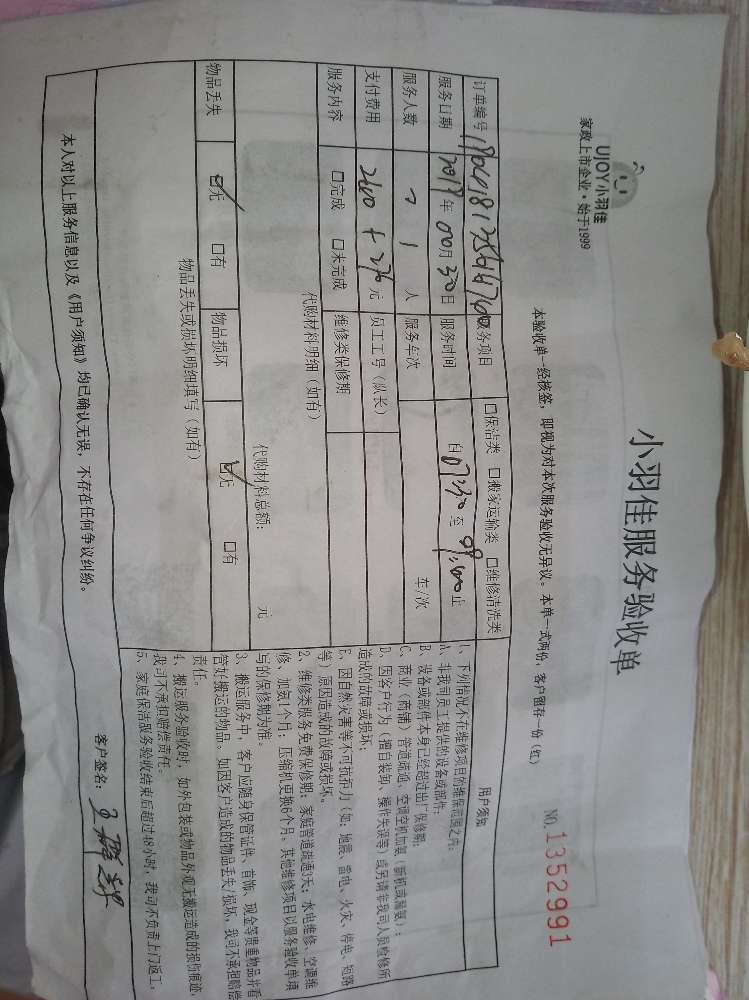 UJOY小羽佳
家政上市企业·始于1999
小羽佳服务验收单
NO.1352991
本验收单一经核签，即视为对本次服务验收无异议。本单一式两份，客户留存一份（红）
订单编号 服务项目 口保洁类 口搬家运输类 口维修清洗类
服务日期 2019年 月30日 服务时间 自07:30至09:00止
服务人数 人 服务车次 车/次
支付费用 2600+276元 员工工号（队长）
服务内容 口完成 口未完成 维修类保修期
代购材料明细（如有）
代购材料总额： 元
物品丢失 口无 口有 物品损坏 口无 口有
物品丢失或损坏明细填写（如有）
用户须知
1、下列情况不在维修项目的维保范围之内：
A、非我司员工提供的设备或部件；
B、设备或部件本身已经超过出厂保修期；
C、商业（商铺）管道疏通、空调空机加氨（新机或漏氨）；
D、因客户行为（擅自装卸、操作失误等）或另请非我司人员检修所
造成的故障或损坏。
E、因自然灾害等不可抗拒力（如：地震、雷电、火灾、停电、短路
等）原因造成的故障或损坏。
2、维修类服务免费保修期：家庭管道疏通3天；水电维修、空调维
修、加氨1个月；压缩机更换6个月。其他维修项目以服务验收单填
写的保修期为准。
3、搬运服务中，客户应随身保管证件、首饰、现金等贵重物品并看
管好搬运的物品。如因客户造成的物品丢失/损坏，我司不承担赔偿
责任。
4、搬运服务验收时，如外包装或物品外观无搬运造成的损伤痕迹，
我司不承担赔偿责任。
5、家庭保洁服务验收结束后超过48小时，我司不负责上门返工。
本人对以上服务信息以及《用户须知》均已确认无误，不存在任何争议纠纷。
客户签名：